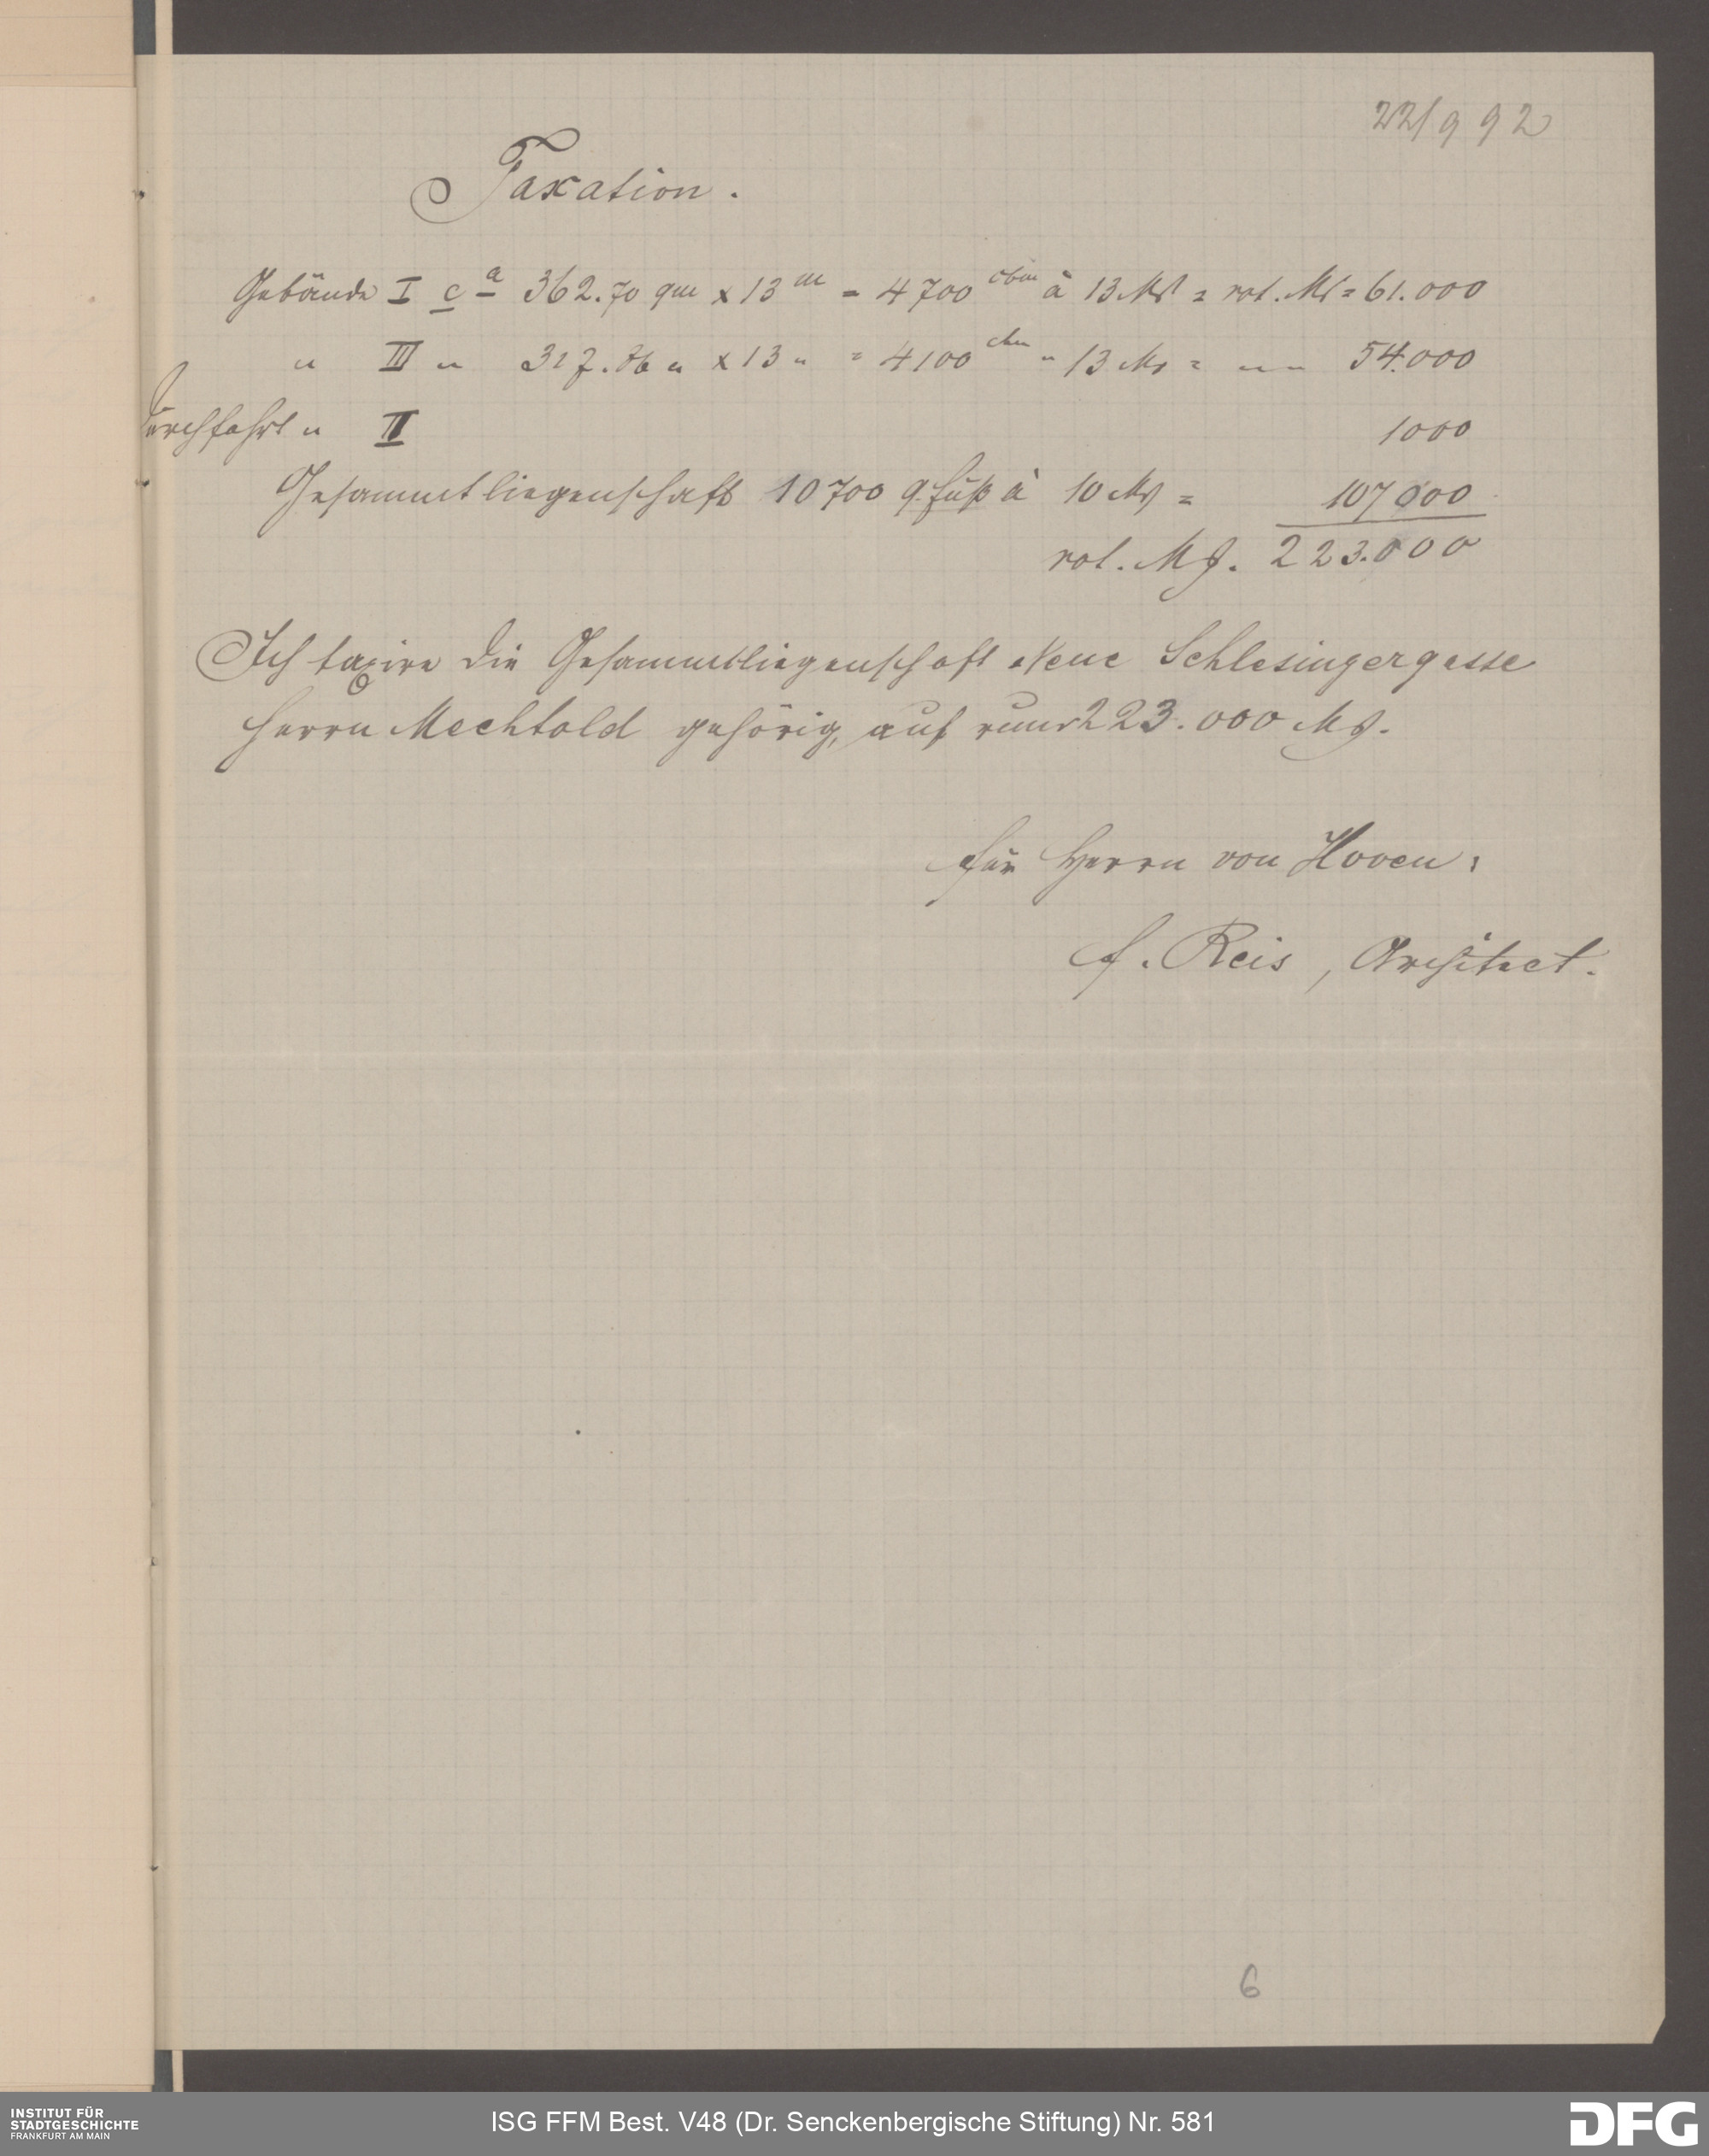 22/9 92
Taxation.
Gebäude I ca 362.70 qm x 13 m = 4700 cbm à 13 Mk = rot. Mk = 61.000
" III " 317.86 " x 13 " = 4100 cbm " 13 Mk = " " 54.000
Durchfahrt " II 1000
Gesammtliegenschaft 10700 q.fuß à 10 Mk = 107000
rot. Mk. 223.000
Ich taxire die Gesammtliegenschaft Neue Schlesingergasse
Herrn Mechtold gehörig, auf rund 223.000 Mk.
Für Herrn von Hoven:
f. Reis, Architect.
6
INSTITUT FÜR
STADTGESCHICHTE
FRANKFURT AM MAIN
ISG FFM Best. V48 (Dr. Senckenbergische Stiftung) Nr. 581
DFG